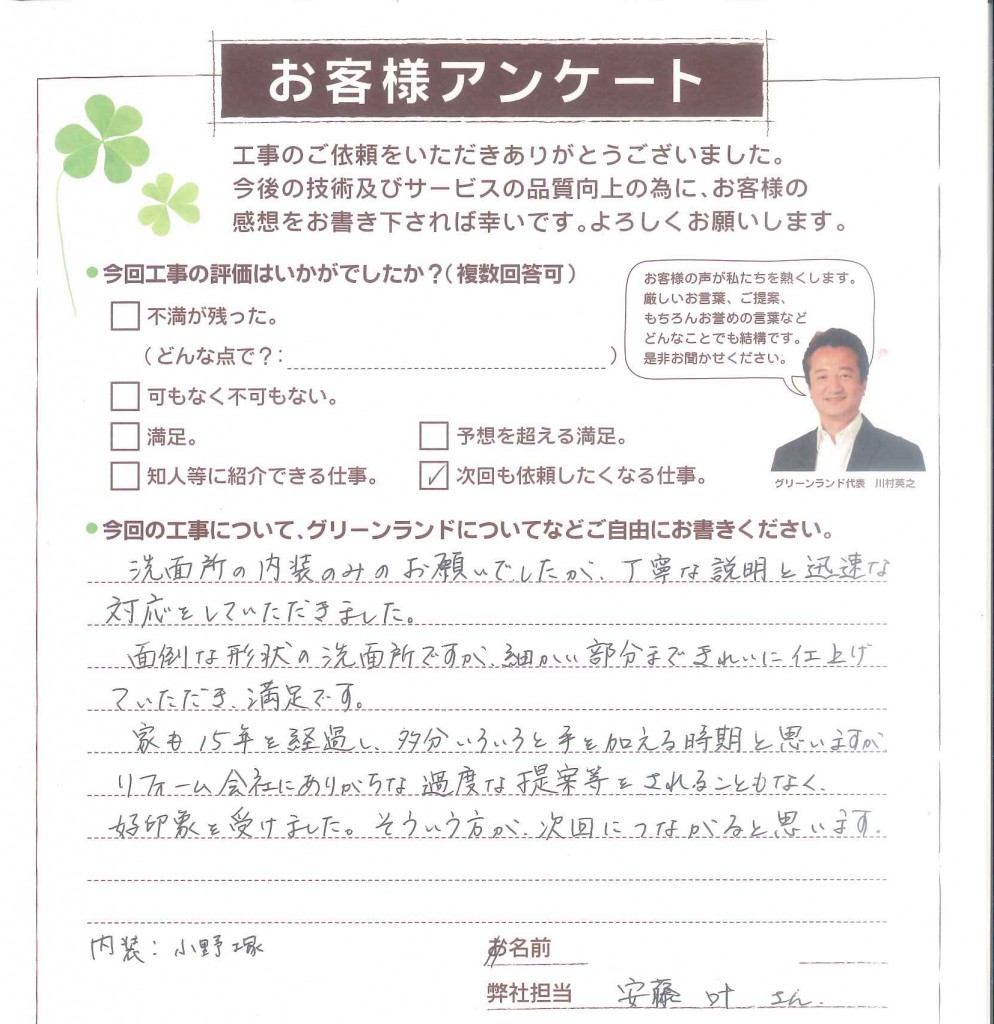 お客様アンケート
工事のご依頼をいただきありがとうございました。
今後の技術及びサービスの品質向上の為に、お客様の
感想をお書き下されば幸いです。よろしくお願いします。
●今回工事の評価はいかがでしたか？（複数回答可）
不満が残った。
（どんな点で？：　）
可もなく不可もない。
満足。　予想を超える満足。
知人等に紹介できる仕事。　✓ 次回も依頼したくなる仕事。
お客様の声が私たちを熱くします。
厳しいお言葉、ご提案、
もちろんお誉めの言葉など
どんなことでも結構です。
是非お聞かせください。
グリーンランド代表　川村英之
●今回の工事について、グリーンランドについてなどご自由にお書きください。
洗面所の内装のみのお願いでしたが、丁寧な説明と迅速な
対応をしていただきました。
面倒な形状の洗面所ですが、細かい部分まできれいに仕上げ
ていただき、満足です。
家も15年を経過し、多分いろいろと手を加える時期と思いますが、
リフォーム会社にありがちな過度な提案等をされることもなく、
好印象を受けました。そういう方が、次回につながると思います。
内装：小野塚
お名前
弊社担当　安藤　叶　さん.